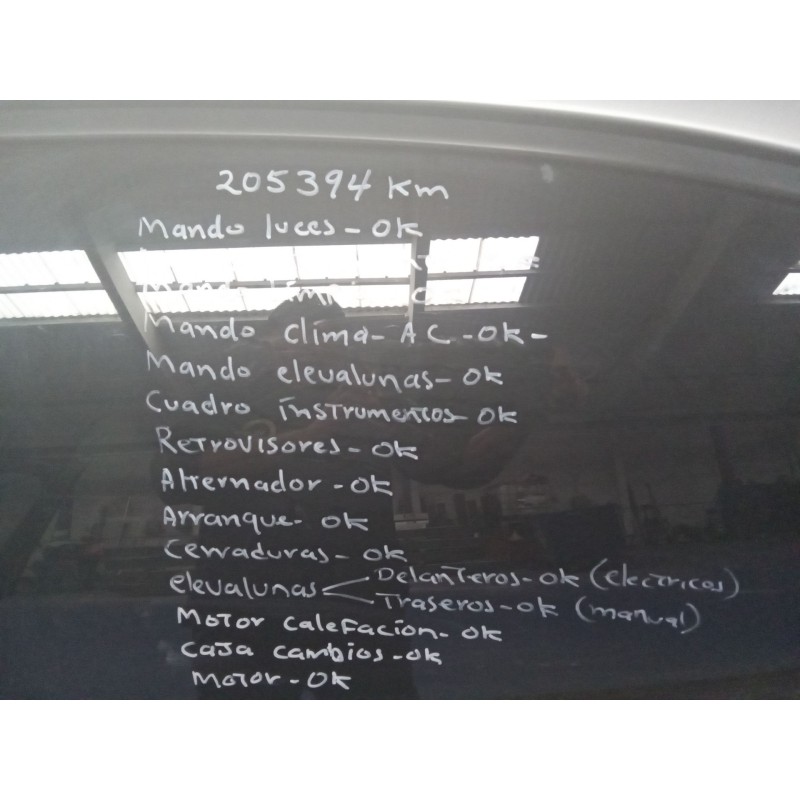 205394 Km
Mando luces - OK
Mando
Mando clima - AC - OK -
Mando elevalunas - OK
Cuadro instrumentos - OK
Retrovisores - OK
Alternador - OK
Arranque - OK
Cerraduras - OK
elevalunas < Delanteros - OK (electricos)
Traseros - OK (manual)
Motor calefacion - OK
Caja cambios - OK
Motor - OK